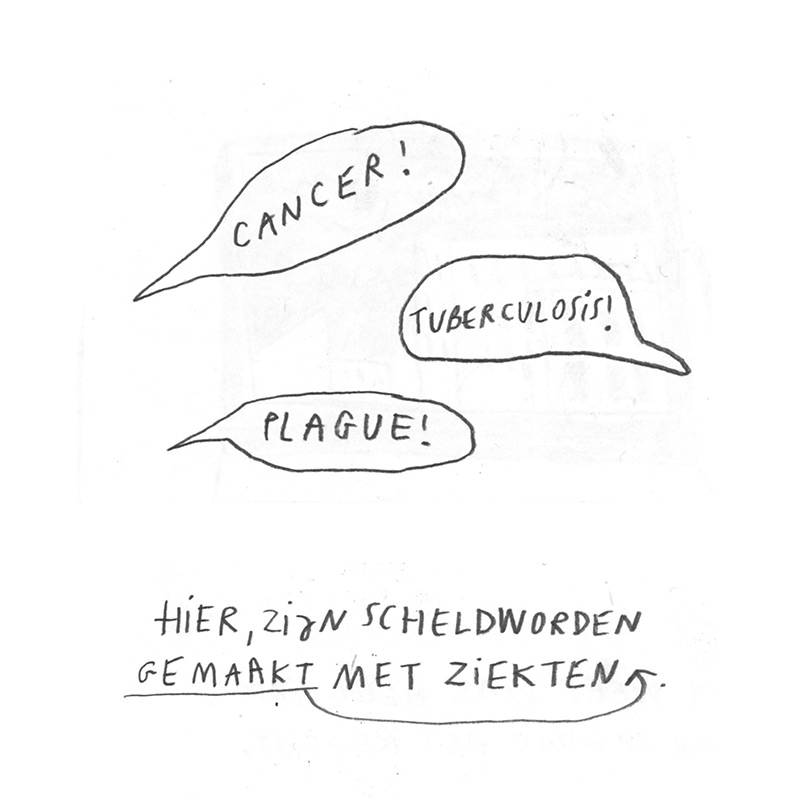 CANCER!
TUBERCULOSIS!
PLAGUE!
HIER, ZIJN SCHELDWORDEN
GEMAAKT MET ZIEKTEN.